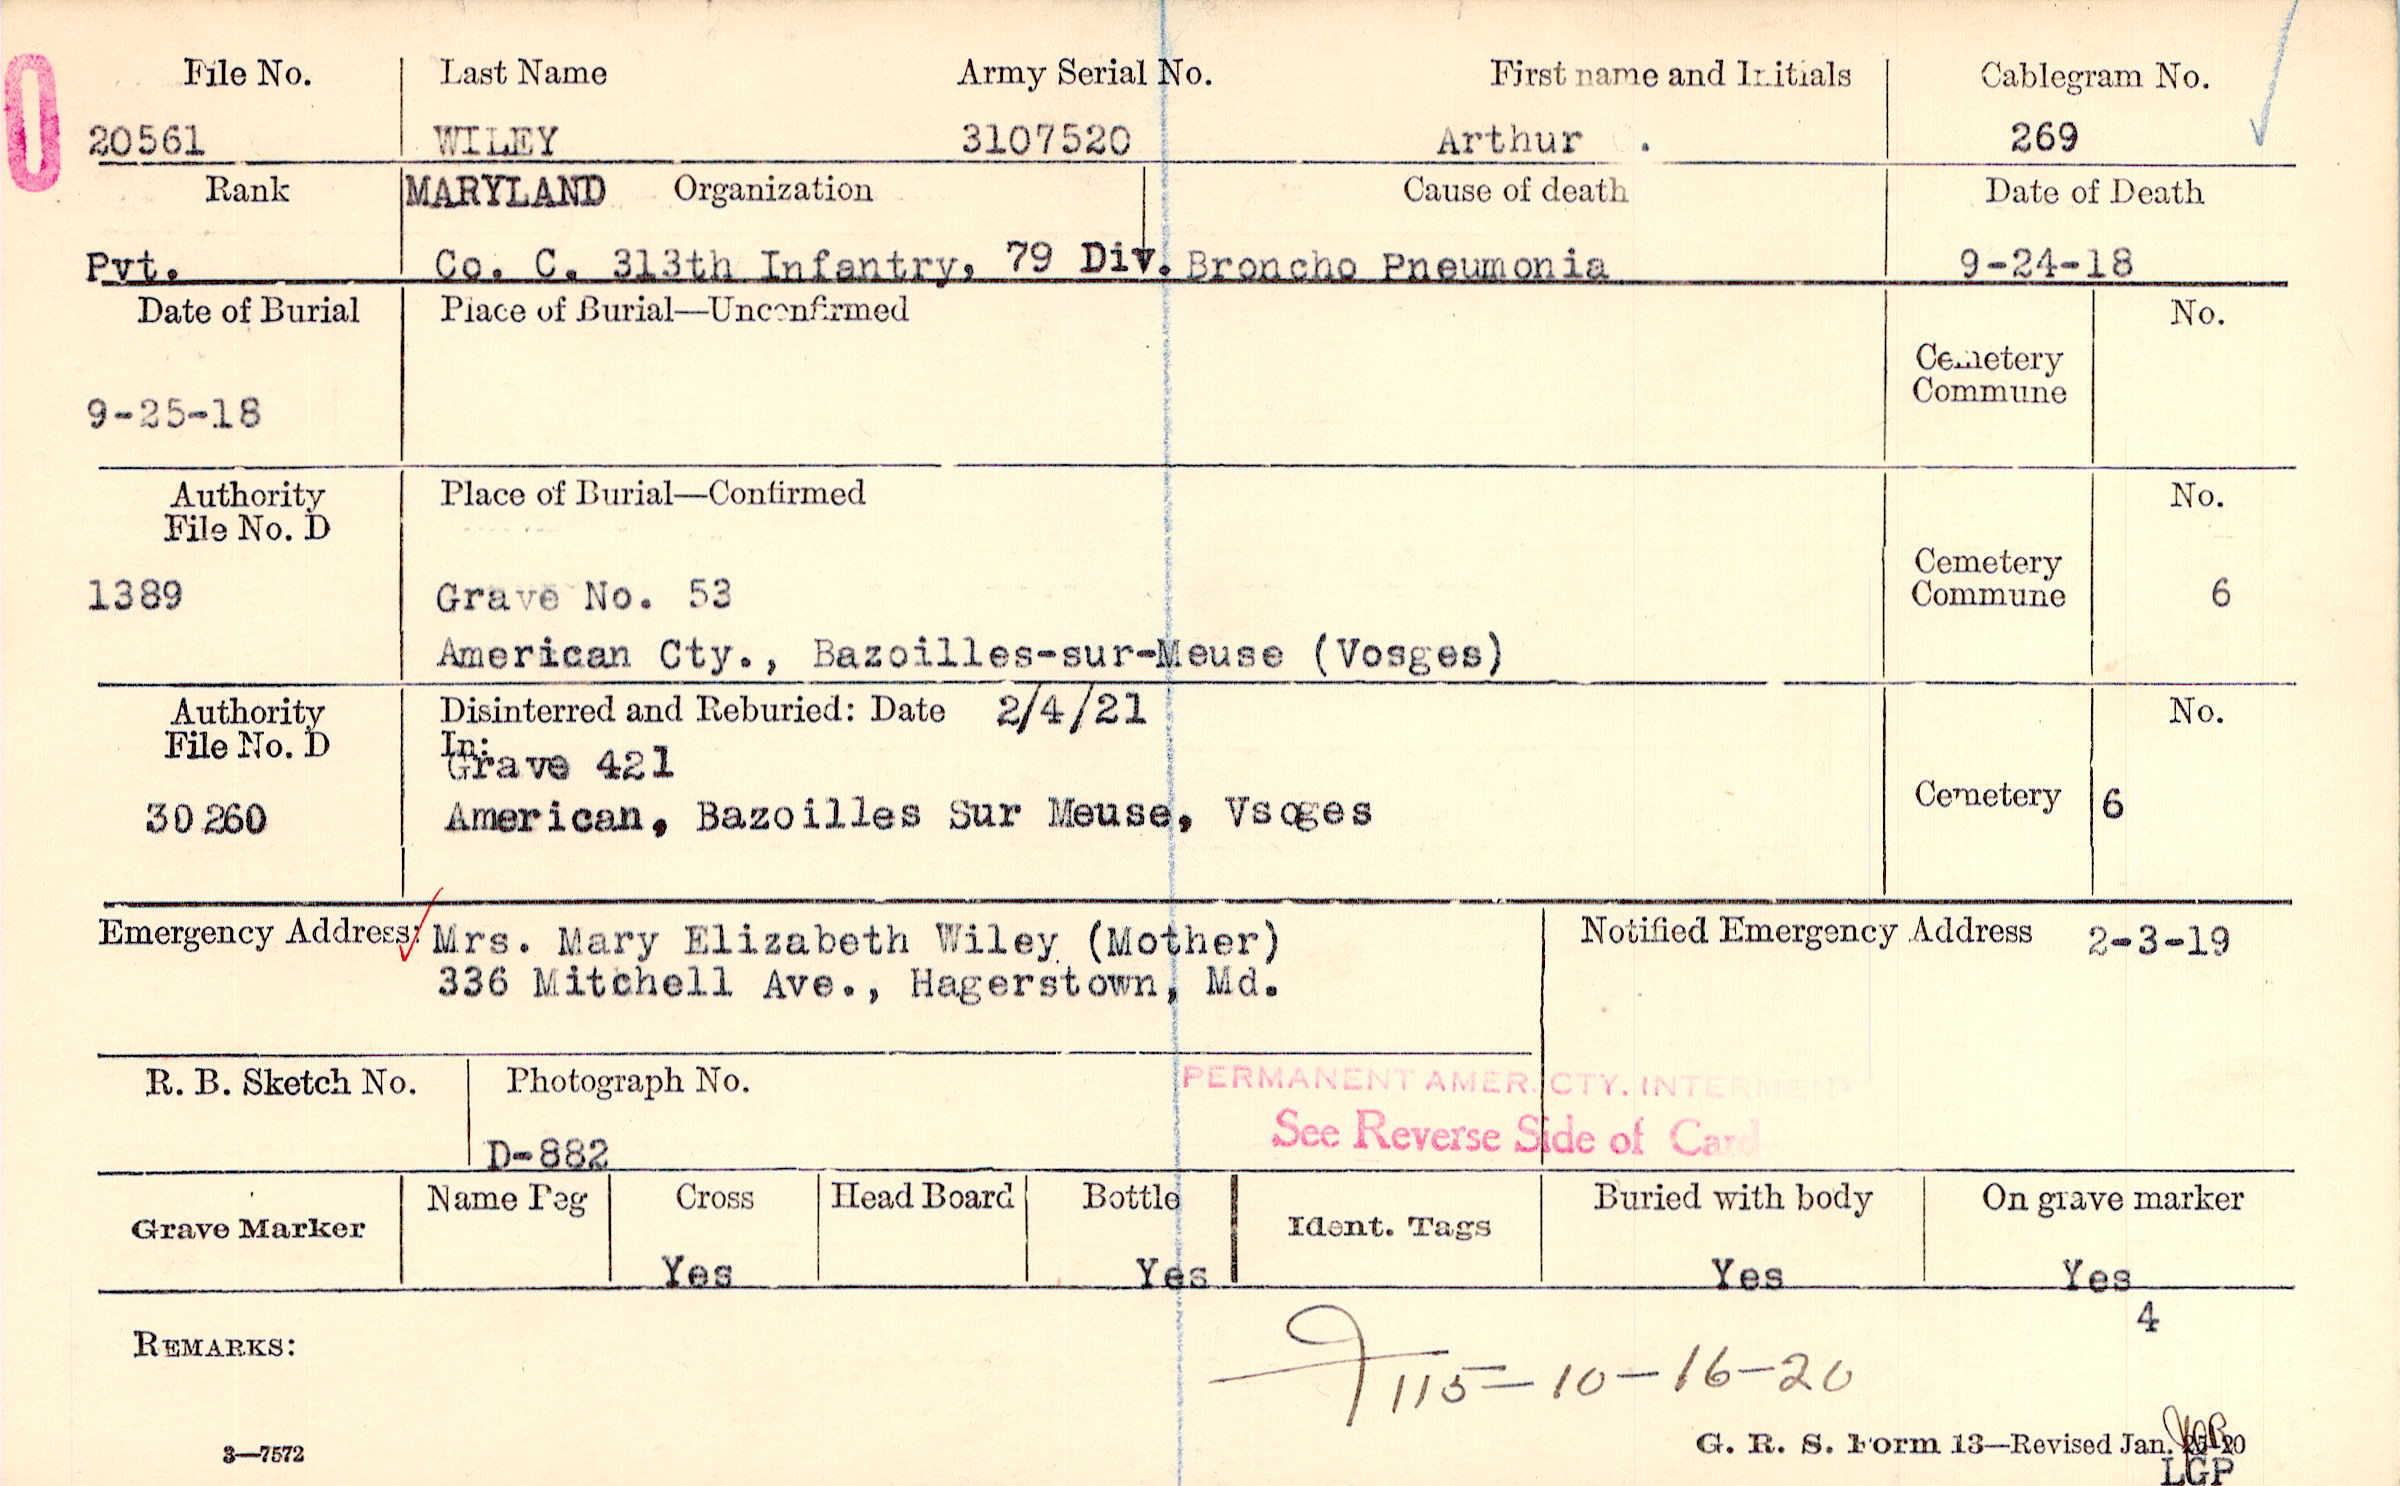 File No. Last Name Army Serial No. First name and Initials Cablegram No.
20561 WILEY 3107520 Arthur . 269
Rank MARYLAND Organization Cause of death Date of Death
Pvt. Co. C. 313th Infantry, 79 Div. Broncho Pneumonia 9-24-18
Date of Burial Place of Burial—Unconfirmed No.
Cemetery
Commune
9-25-18
Authority Place of Burial—Confirmed No.
File No. D
Cemetery
1389 Grave No. 53 Commune 6
American Cty., Bazoilles-sur-Meuse (Vosges)
Authority Disinterred and Reburied: Date 2/4/21 No.
File No. D In:
Grave 421
30260 American, Bazoilles Sur Meuse, Vsoges Cemetery 6
Emergency Address: Mrs. Mary Elizabeth Wiley (Mother) Notified Emergency Address 2-3-19
336 Mitchell Ave., Hagerstown, Md.
R. B. Sketch No. Photograph No. PERMANENT AMER. CTY. INTERMENT
See Reverse Side of Card
D-882
Name Peg Cross Head Board Bottle Buried with body On grave marker
Grave Marker Ident. Tags
Yes Yes Yes Yes
4
REMARKS:
115-10-16-20
3—7572 G. R. S. Form 13—Revised Jan.
LGP